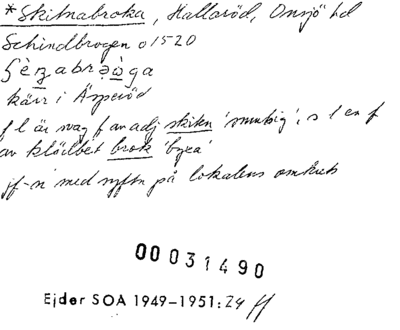 *Skitnabroka, Hallaröd, Onsjö hd
Schindbrogen o 1520
kärr i Äsperöd
f l är svag f av adj skiten 'smutsig', s l en f
av klädbet brok 'byxa'
jf-n med syftn på lokalens omkrets
00031490
Ejder SOA 1949-1951: 24 ff